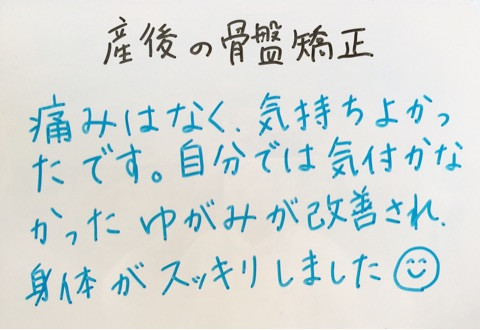 産後の骨盤矯正
痛みはなく、気持ちよかっ
たです。自分では気付かな
かったゆがみが改善され、
身体がスッキリしました